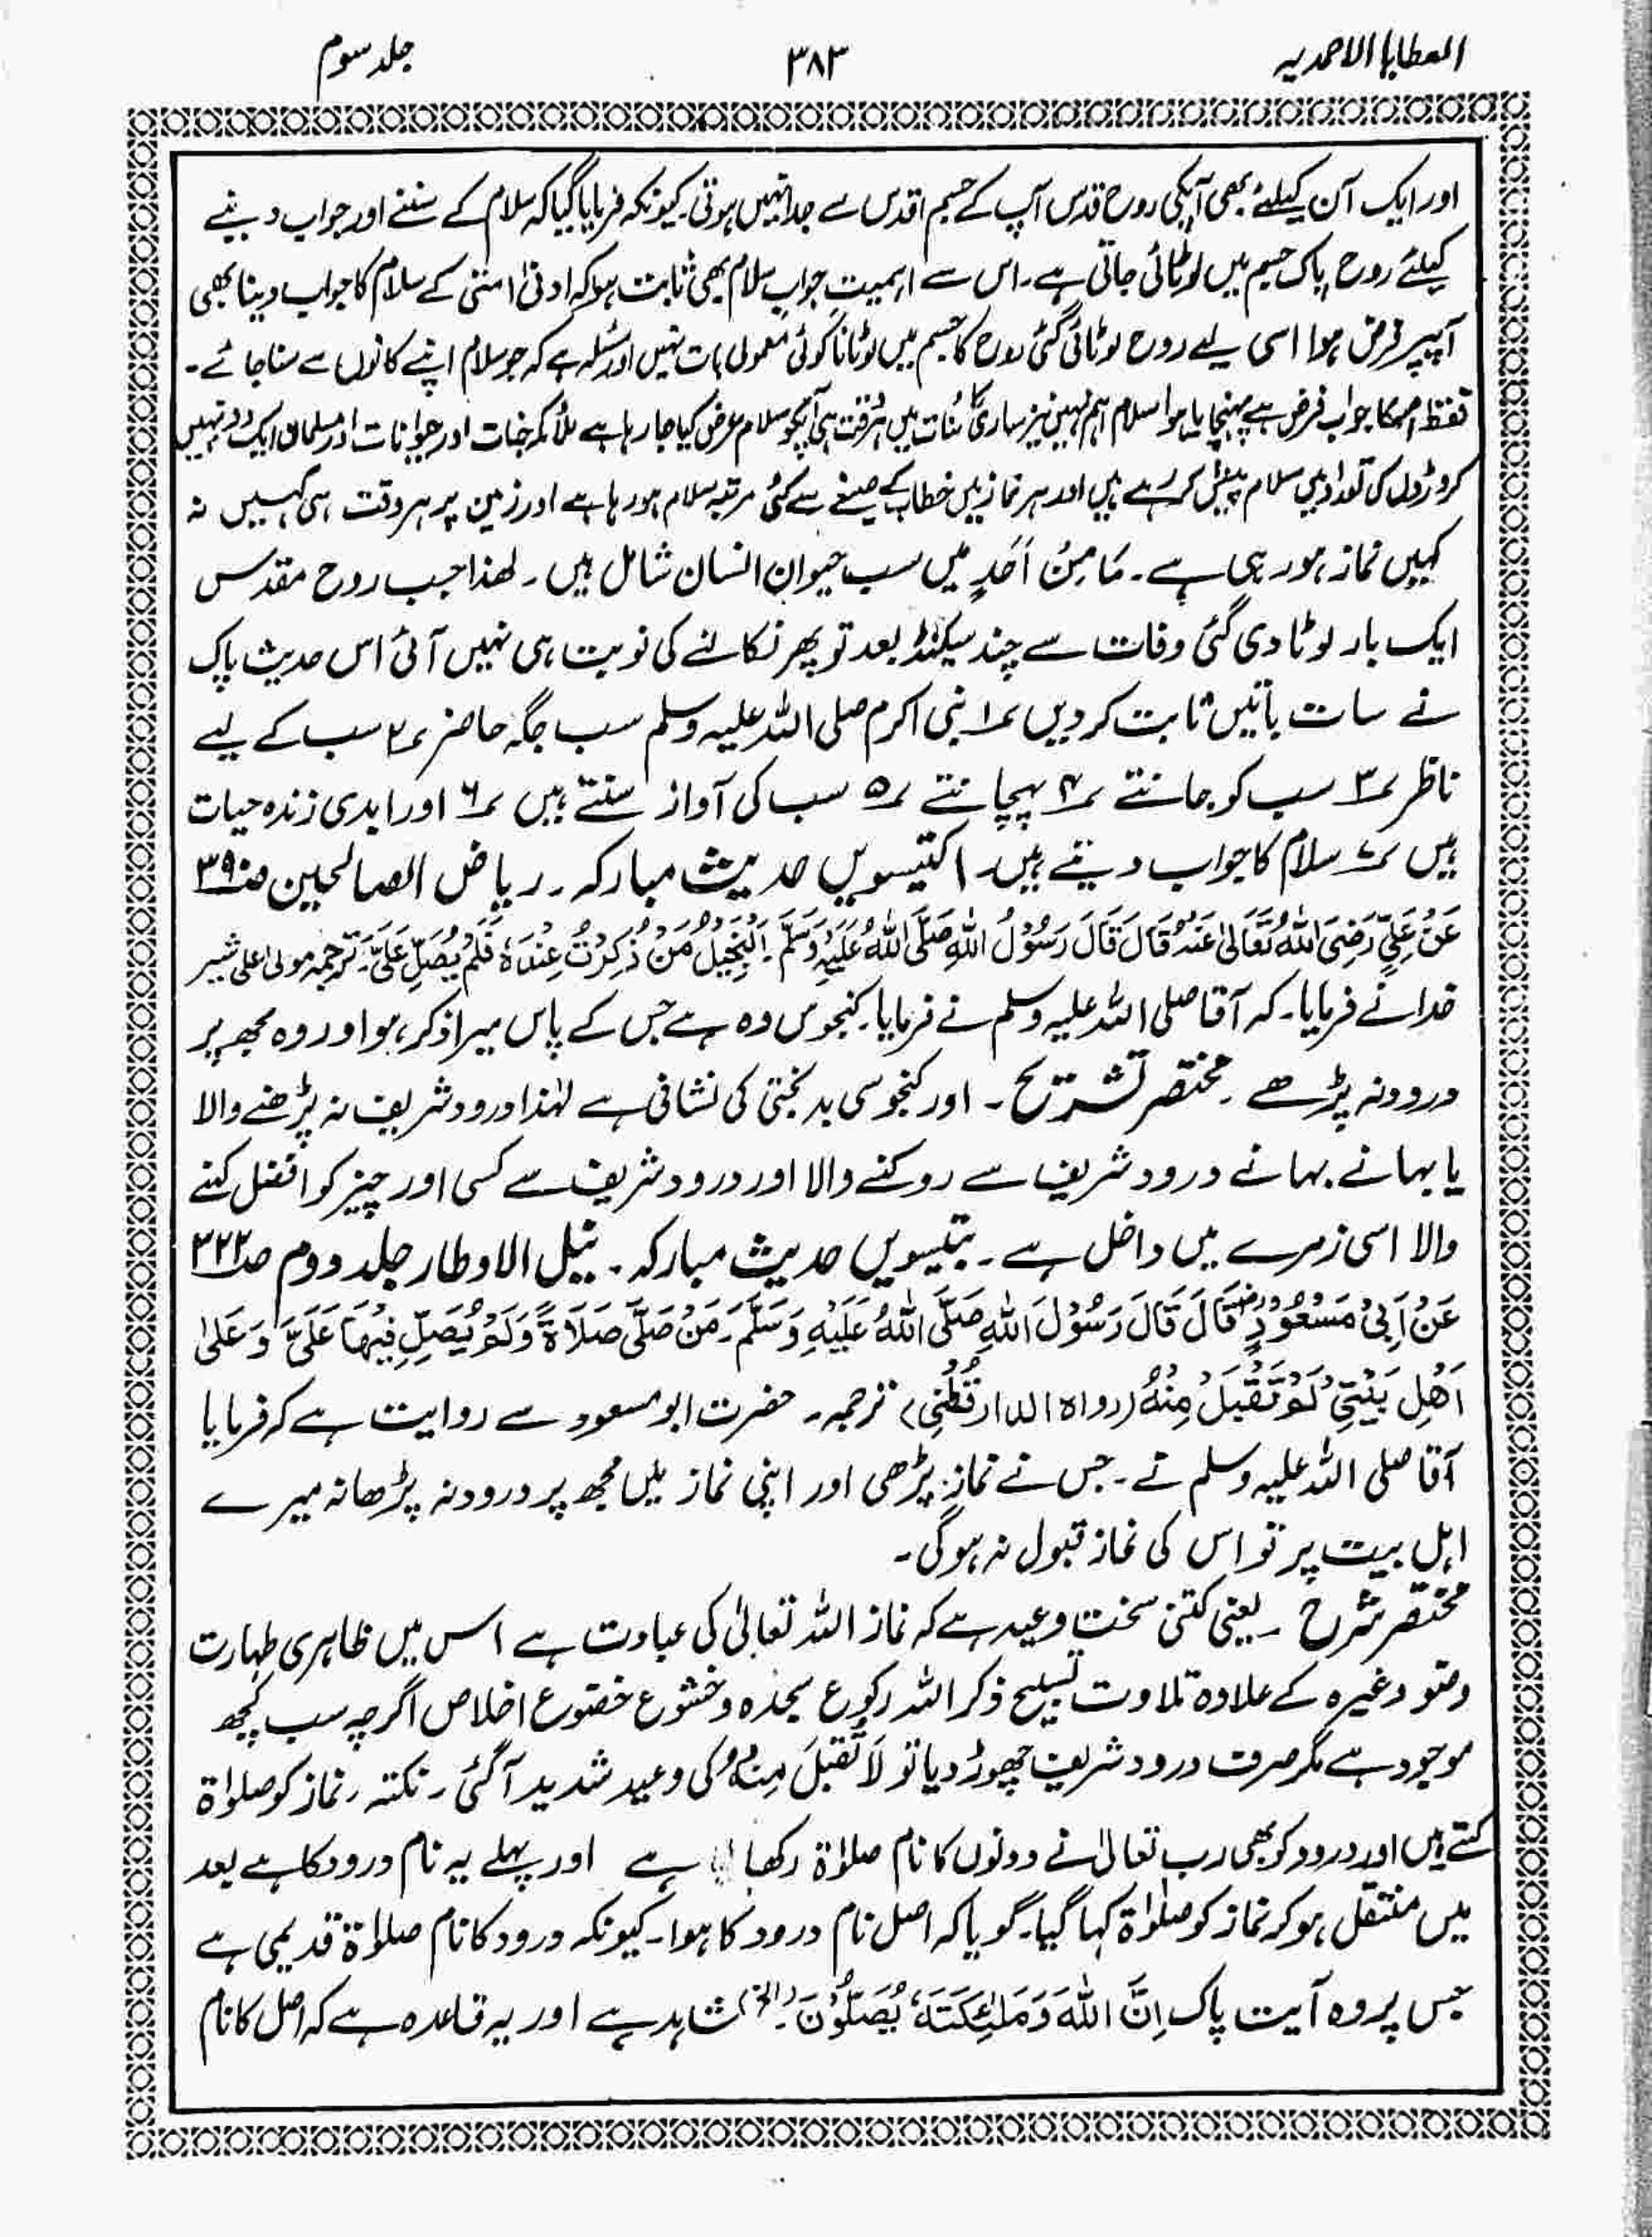 العطایا الاحمدیہ
۳۸۳
جلد سوم
اور ایک آن کیلئے بھی آپکی روح قدس آپ کے جسم اقدس سے جدا نہیں ہوتی۔ کیونکہ فرمایا گیا کہ سلام کے سننے اور جواب دینے
کیلئے روح پاک جسم میں لوٹائی جاتی ہے۔ اس سے اہمیت جواب سلام بھی ثابت ہو کہ ادنیٰ امتی کے سلام کا جواب دینا بھی
آپپر فرض ہوا اسی لیے روح لوٹائی گئی روح کا جسم میں لوٹانا کوئی معمولی بات نہیں اور مسئلہ ہے کہ جو سلام اپنے کانوں سے سنا جائے۔
فقط اسکا جواب فرض ہے پہنچایا ہوا سلام اہم نہیں نیز ساری کائنات میں ہر وقت ہی آپکو سلام عرض کیا جا رہا ہے ملائکہ جنات اور حیوانات اور مسلمان ایک دو نہیں
کروڑوں کی تعداد میں سلام پیش کر رہے ہیں اور ہر نماز میں خطاب کے صیغے سے کئی مرتبہ سلام ہو رہا ہے اور زمین پر ہر وقت ہی کہیں نہ
کہیں نماز ہو رہی ہے۔ مَا مِنْ اَحَدٍ میں سب حیوان انسان شامل ہیں۔ لھذا جب روح مقدس
ایک بار لوٹا دی گئی وفات سے چند سیکنڈ بعد تو پھر نکالنے کی نوبت ہی نہیں آئی اس حدیث پاک
نے سات باتیں ثابت کر دیں ؍۱ نبی اکرم صلی اللہ علیہ وسلم سب جگہ حاضر ؍۲ سب کے لیے
ناظر ؍۳ سب کو جانتے ؍۴ پہچانتے ؍۵ سب کی آواز سنتے ہیں ؍۶ اور ابدی زندہ حیات
ہیں ؍۷ سلام کا جواب دیتے ہیں۔ اکتیسویں حدیث مبارکہ۔ ریاض الصالحین صـ۳۹۰
عَنْ عَلِیٍّ رَضِیَ اللہُ تَعَالیٰ عَنْہُ قَالَ قَالَ رَسُوْلُ اللہِ صَلَّی اللہُ عَلَیْہِ وَسَلَّمَ۔ اَلْبَخِیْلُ مَنْ ذُکِرْتُ عِنْدَہٗ فَلَمْ یُصَلِّ عَلَیَّ۔ ترجمہ مولیٰ علی شیر
خدا نے فرمایا۔ کہ آقا صلی اللہ علیہ وسلم نے فرمایا۔ کنجوس وہ ہے جس کے پاس میرا ذکر ہوا اور وہ مجھ پر
درود نہ پڑھے ۔ مختصر تشریح ۔ اور کنجوسی بدبختی کی نشانی ہے لہٰذا درود شریف نہ پڑھنے والا
یا بہانے بہانے درود شریف سے روکنے والا اور درود شریف سے کسی اور چیز کو افضل کہنے
والا اسی زمرے میں داخل ہے ۔ بتیسویں حدیث مبارکہ ۔ نیل الاوطار جلد دوم صـ۳۲۲
عَنْ اَبِیْ مَسْعُوْدٍ قَالَ قَالَ رَسُوْلَ اللہِ صَلَّی اللہُ عَلَیْہِ وَسَلَّمَ۔ مَنْ صَلّٰی صَلَاۃً وَلَمْ یُصَلِّ فِیْہَا عَلَیَّ وَ عَلیٰ
اَھْلِ بَیْتِیْ لَمْ تُقْبَلْ مِنْہُ (رواہ الدارقُطْنِی) ترجمہ۔ حضرت ابو مسعود سے روایت ہے کہ فرمایا
آقا صلی اللہ علیہ وسلم نے ۔ جس نے نماز پڑھی اور اپنی نماز میں مجھ پر درود نہ پڑھا نہ میرے
اہل بیت پر تو اس کی نماز قبول نہ ہوگی۔
مختصر شرح ۔ یعنی کتنی سخت وعید ہے کہ نماز اللہ تعالیٰ کی عبادت ہے اس میں ظاہری طہارت
وضو وغیرہ کے علاوہ تلاوت تسبیح ذکر اللہ رکوع سجدہ و خشوع خضوع اخلاص اگرچہ سب کچھ
موجود ہے مگر صرف درود شریف چھوڑ دیا تو لَا تُقْبَلَ مِنْہُ کی وعید شدید آ گئی ۔ نکتہ ۔ نماز کو صلوٰۃ
کہتے ہیں اور درود کو بھی رب تعالیٰ نے دونوں کا نام صلوٰۃ رکھا ہے اور پہلے یہ نام درود کا ہے بعد
میں منتقل ہو کر نماز کو صلوٰۃ کہا گیا۔ گویا کہ اصل نام درود کا ہوا۔ کیونکہ درود کا نام صلوٰۃ قدیمی ہے
جس پر وہ آیت پاک اِنَّ اللہَ وَمَلٰئِکَتَہٗ یُصَلُّوْنَ۔ (الخ) شاہد ہے اور یہ قاعدہ ہے کہ اصل کا نام